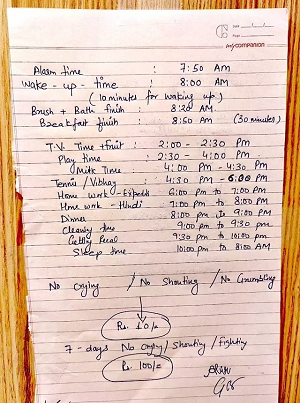 mycompanion
Alarm time : 7:50 AM
Wake - up - time : 8:00 AM
(10 minutes for waking up)
Brush + Bath finish : 8:20 AM
Breakfast finish : 8:50 AM (30 minutes)
T.V. Time + fruit : 2:00 - 2:30 PM
Play time : 2:30 - 4:00 PM
Milk Time : 4:00 PM - 4:30 PM
Tennis / Vibhav : 4:30 PM - 6:00 PM
Home work - 6:00 PM to 7:00 PM
Home work - Hindi 7:00 PM to 8:00 PM
Dinner 8:00 PM to 9:00 PM
time 9:00 PM to 9:30 PM
9:30 PM to 10:00 PM
Sleep time 10:00 PM to 8:00 AM
No Crying / No Shouting / No Grumbling
Rs. 10/-
7 - days No crying / Shouting / fighting
Rs. 100/=